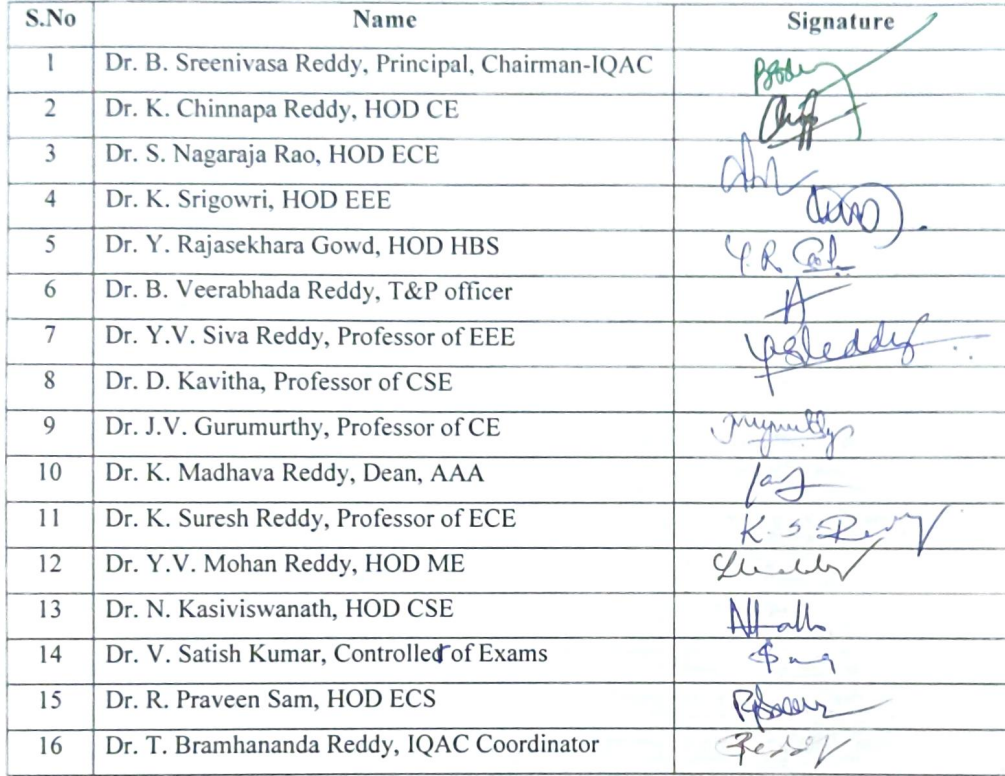 S.No Name Signature
1 Dr. B. Sreenivasa Reddy, Principal, Chairman-IQAC
2 Dr. K. Chinnapa Reddy, HOD CE
3 Dr. S. Nagaraja Rao, HOD ECE
4 Dr. K. Srigowri, HOD EEE
5 Dr. Y. Rajasekhara Gowd, HOD HBS
6 Dr. B. Veerabhada Reddy, T&P officer
7 Dr. Y.V. Siva Reddy, Professor of EEE
8 Dr. D. Kavitha, Professor of CSE
9 Dr. J.V. Gurumurthy, Professor of CE
10 Dr. K. Madhava Reddy, Dean, AAA
11 Dr. K. Suresh Reddy, Professor of ECE K. S Reddy
12 Dr. Y.V. Mohan Reddy, HOD ME
13 Dr. N. Kasiviswanath, HOD CSE
14 Dr. V. Satish Kumar, Controller of Exams
15 Dr. R. Praveen Sam, HOD ECS
16 Dr. T. Bramhananda Reddy, IQAC Coordinator Reddy